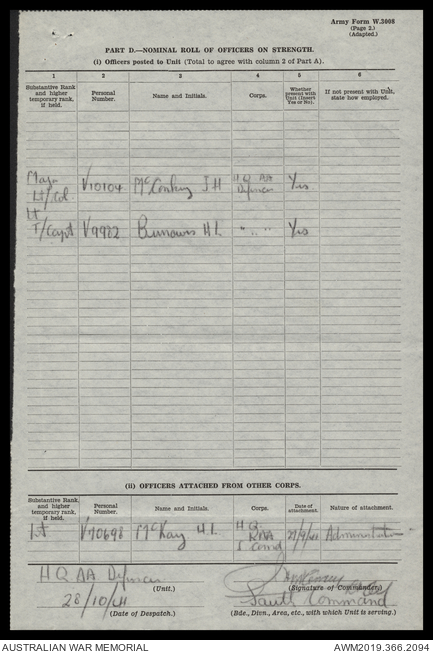 Army Form W.3008
(Page 2.)
(Adapted.)
PART D.—NOMINAL ROLL OF OFFICERS ON STRENGTH.
(i) Officers posted to Unit (Total to agree with column 2 of Part A).
1 2 3 4 5 6
Substantive Rank and higher temporary rank, if held. Personal Number. Name and Initials. Corps. Whether present with Unit (Insert Yes or No). If not present with Unit, state how employed.
Major
Lt/Col. V10104 McConkey J H H Q AA Defences Yes
Lt
T/Capt V9982 Burrows H L " " " Yes
(ii) OFFICERS ATTACHED FROM OTHER CORPS.
Substantive Rank and higher temporary rank, if held. Personal Number. Name and Initials. Corps. Date of attachment. Nature of attachment.
Lt V70698 McKay H.L. H.Q. RAA Comd Administration
H Q AA Defences (Unit.)
(Signature of Commander.)
28/10/41
(Date of Despatch.)
South Command
(Bde., Divn., Area, etc., with which Unit is serving.)
AUSTRALIAN WAR MEMORIAL
AWM2019.366.2094